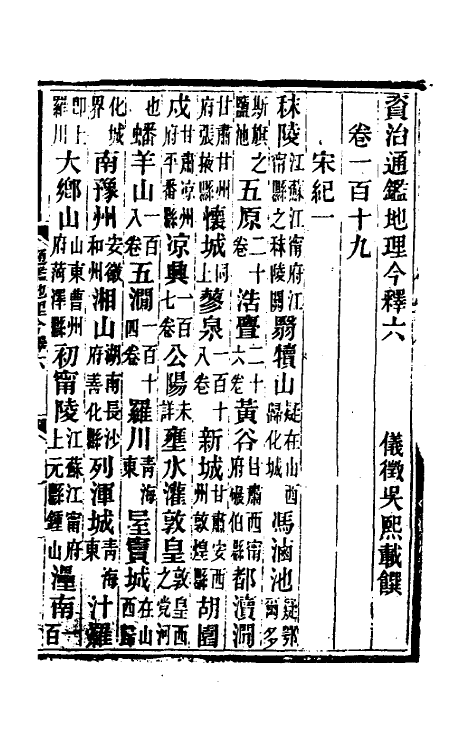 資治通鑑地理今釋六　儀徵吳熙載饌
卷一百十九
宋紀一
秣陵江蘇江甯府江甯縣之秣陵關翳犢山疑在山西歸化城馮滷池疑鄂爾多
斯旗之鹽池五原二十卷浩亹二十六卷黃谷甘肅西甯府碾伯縣都瀆澗
甘肅甘州府張掖縣懷城同上蓼泉一百十八卷新城甘肅安西州敦煌縣胡園
戍甘肅涼州府平番縣凉興一百七卷公陽未詳壅水灌敦皇敦皇西之党河
也蟠羊山一百八卷五澗一百十四卷羅川青海東屋竇城在山西歸
化城界南豫州安徽和州湘山湖南長沙府善化縣列渾城青海東汁羅
即上羅川大鄉山山東曹州府菏澤縣初甯陵江蘇江甯府上元縣鍾山南一百
通鑑地理今釋六